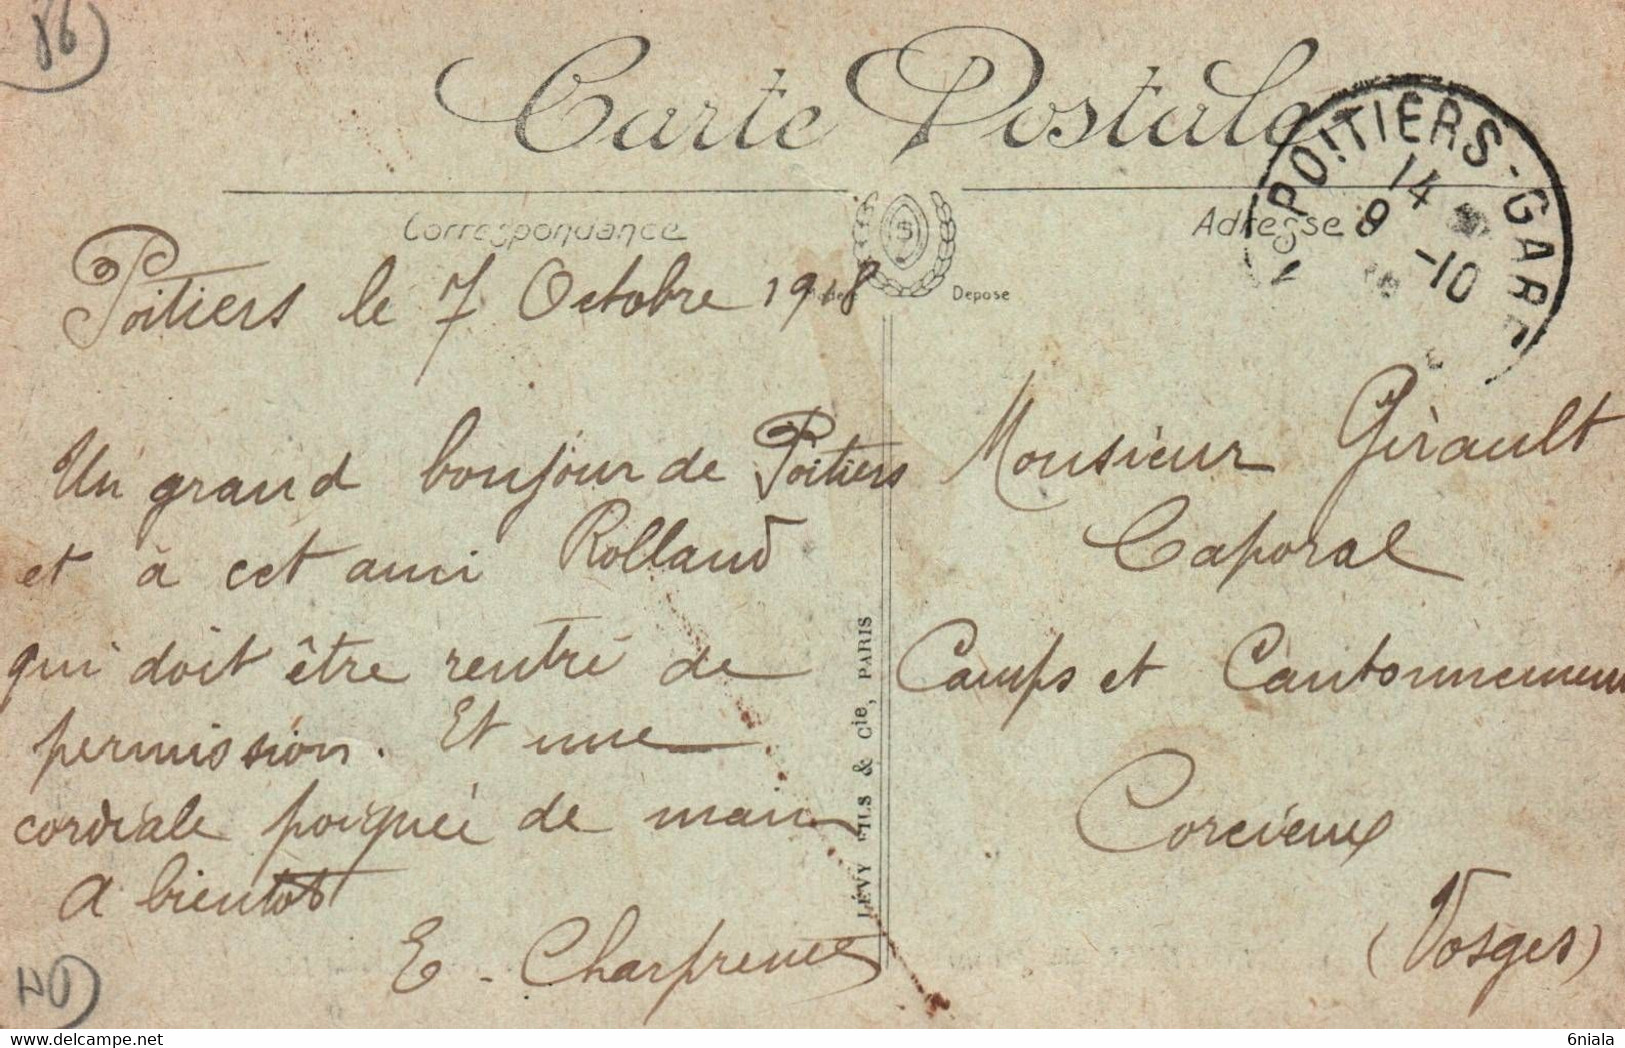 86
Carte Postale
POITIERS-GARE
14
9 -10
Correspondance
Adresse
Deposé
Poitiers le 7 Octobre 1918
Un grand bonjour de Poitiers
et à cet ami Rolland
qui doit être rentré de
permission. Et une
cordiale poignée de main
A bientôt
LÉVY FILS & Cie, PARIS
Monsieur Girault
Caporal
Camps et Cantonnement
Corcieux
(Vosges)
delcampe.net
6niala